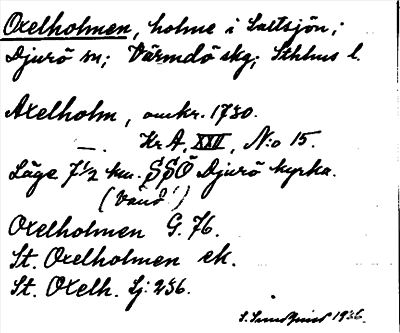 Oxelholmen, holme i Saltsjön;
Djurö sn; Värmdö skg; Sthlms l.
Axelholm, omkr. 1730.
—. Kr A, XXII, N:o 15.
Läge 7 1/2 km. SSÖ Djurö kyrka.
Oxelholmen G. 76.
St. Oxelholmen ek.
St. Oxelh. Lj: 256.
1936.